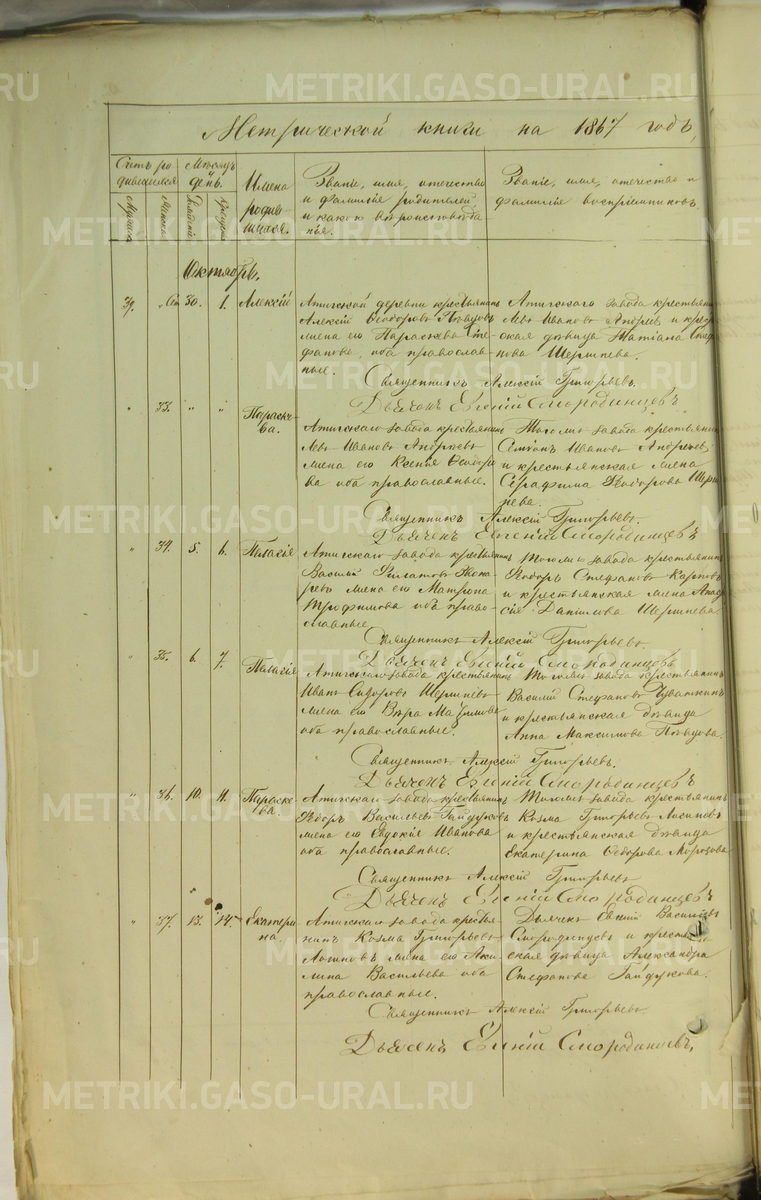 METRIKI.GASO-URAL.RU
Метрической книги на 1867 годъ,
Счетъ ро-
дившихся
Мѣсяцъ
день.
Имена
родив-
шихся.
Званіе, имя, отечество
и фамилія родителей
и какого вѣроисповѣда
нія.
Званіе, имя, отечество и
фамилія воспріемниковъ
Октябрь.
39. 30. 1. Алексій
Атигской деревни крестьянинъ
Алексій Ѳеодоровъ
жена его Параскева Сте-
фанова, оба православ-
ные.
Атигскаго завода крестьянинъ
Левъ Ивановъ Андреевъ и кресть
ская дѣвица Татіана Стеф
нова Шерытева.
Священникъ Алексій Григорьевъ.
Дьяченъ Евгеній Смородинцевъ
33. " " Параске-
ва.
Атигскаго завода крестьянинъ
Левъ Ивановъ Андреевъ
жена его Ксенія Ѳеодоро
ва оба православные.
Тогожъ завода крестьянинъ
Семенъ Ивановъ Андреевъ
и крестьянская жена
Серафима Ѳеодорова
Священникъ Алексій Григорьевъ.
Дьяченъ Евгеній Смородинцевъ
34. 5. 6. Палагія
Атигскаго завода крестьянинъ
Василій Филатовъ
жена его Матрона
Трофимова оба право-
славные.
Тогожъ завода крестьянинъ
Ѳеодоръ Стефановъ Карповъ
и крестьянская жена
Данилова
Священникъ Алексій Григорьевъ
Дьяченъ Евгеній Смородинцевъ
35. 6. 7. Палагія
Атигскаго завода крестьянинъ
Иванъ Сидоровъ
жена его Вѣра Максимова
оба православные.
Тогожъ завода крестьянинъ
Василій Стефановъ
и крестьянская дѣвица
Анна Максимова Пѣвцова.
Священникъ Алексій Григорьевъ.
Дьяченъ Евгеній Смородинцевъ
36. 10. 11. Параске-
ва.
Атигскаго завода крестьянинъ
Ѳеодоръ Васильевъ Гайдуковъ
жена его Евдокія Иванова
оба православные.
Тогожъ завода крестьянинъ
Козма Григорьевъ
и крестьянская дѣвица
Екатерина Ѳедорова Морозова
Священникъ Алексій Григорьевъ
Дьяченъ Евгеній Смородинцевъ
37. 13. 14. Екатери
на.
Атигскаго завода крестья
нинъ Козма Григорьевъ
жена его Аки-
лина Васильева оба
православные.
Дьячекъ Евгеній Васильевъ
Смородинцевъ и крестьян
ская дѣвица Александра
Стефанова Гайдукова.
Священникъ Алексій Григорьевъ
Дьяченъ Евгеній Смородинцевъ,